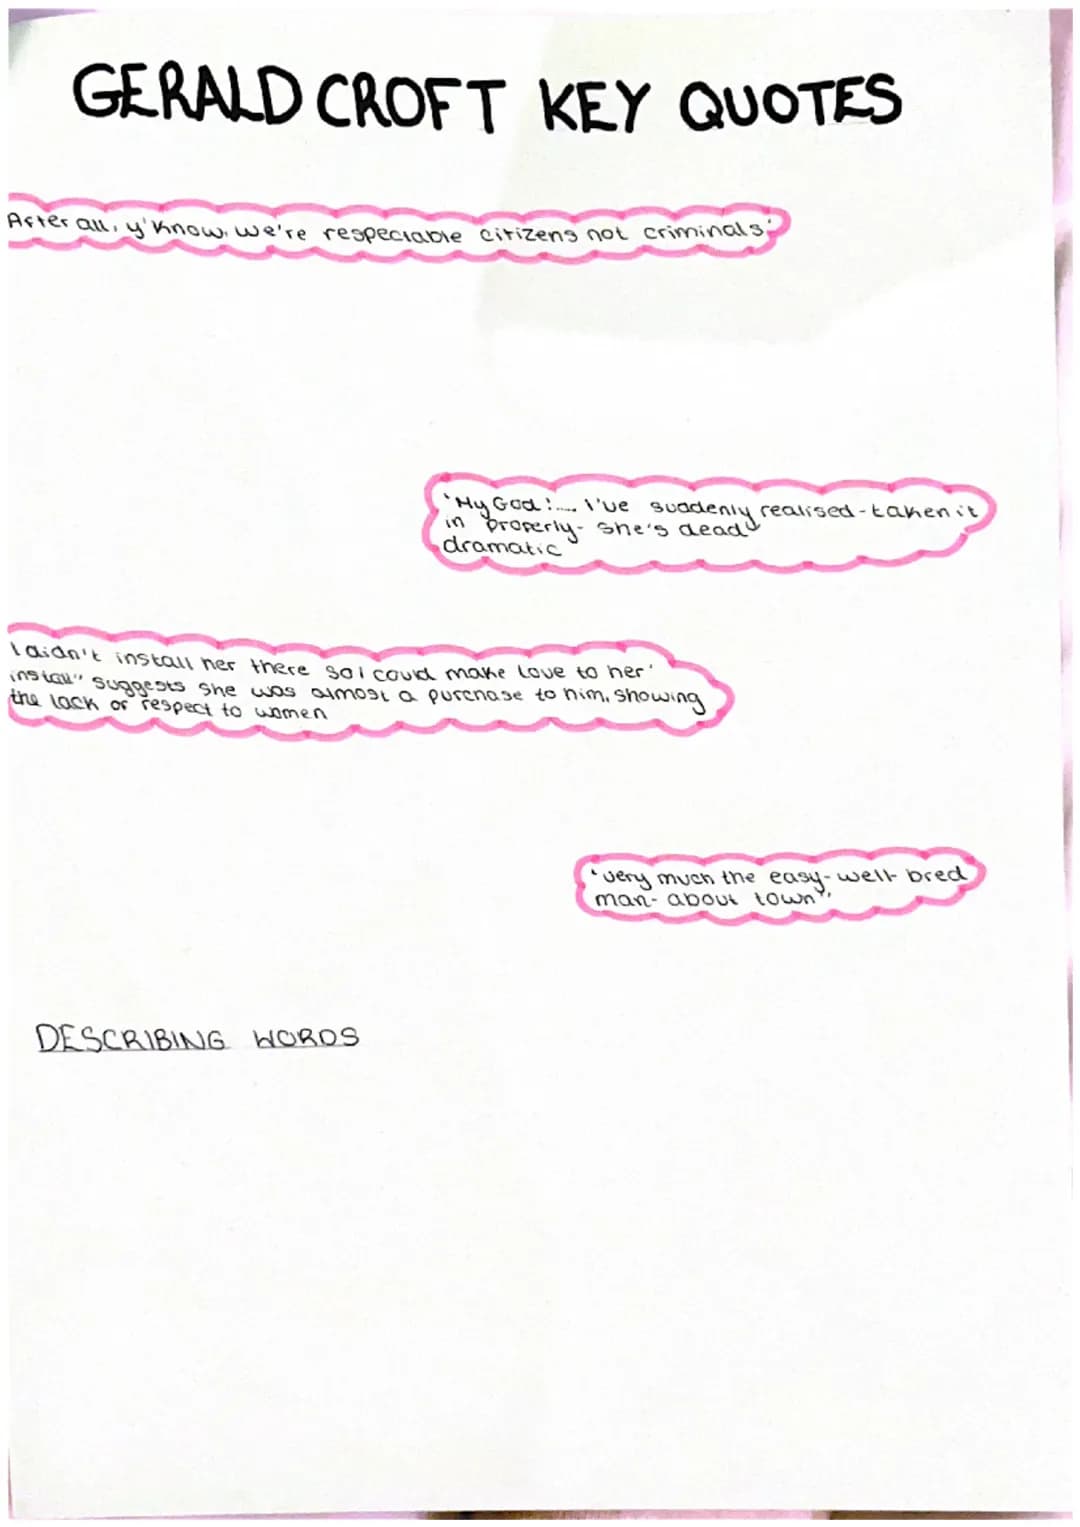 GERALD CROFT KEY QUOTES
After all, y'know, we're respectable citizens not criminals.'
'My God!.... I've suddenly realised-taken it
in properly- she's dead'
dramatic
I didn't install her there so I could make love to her'
install" suggests she was almost a purchase to him, showing
the lack of respect to women
'very much the easy-well-bred
man-about town",
DESCRIBING WORDS